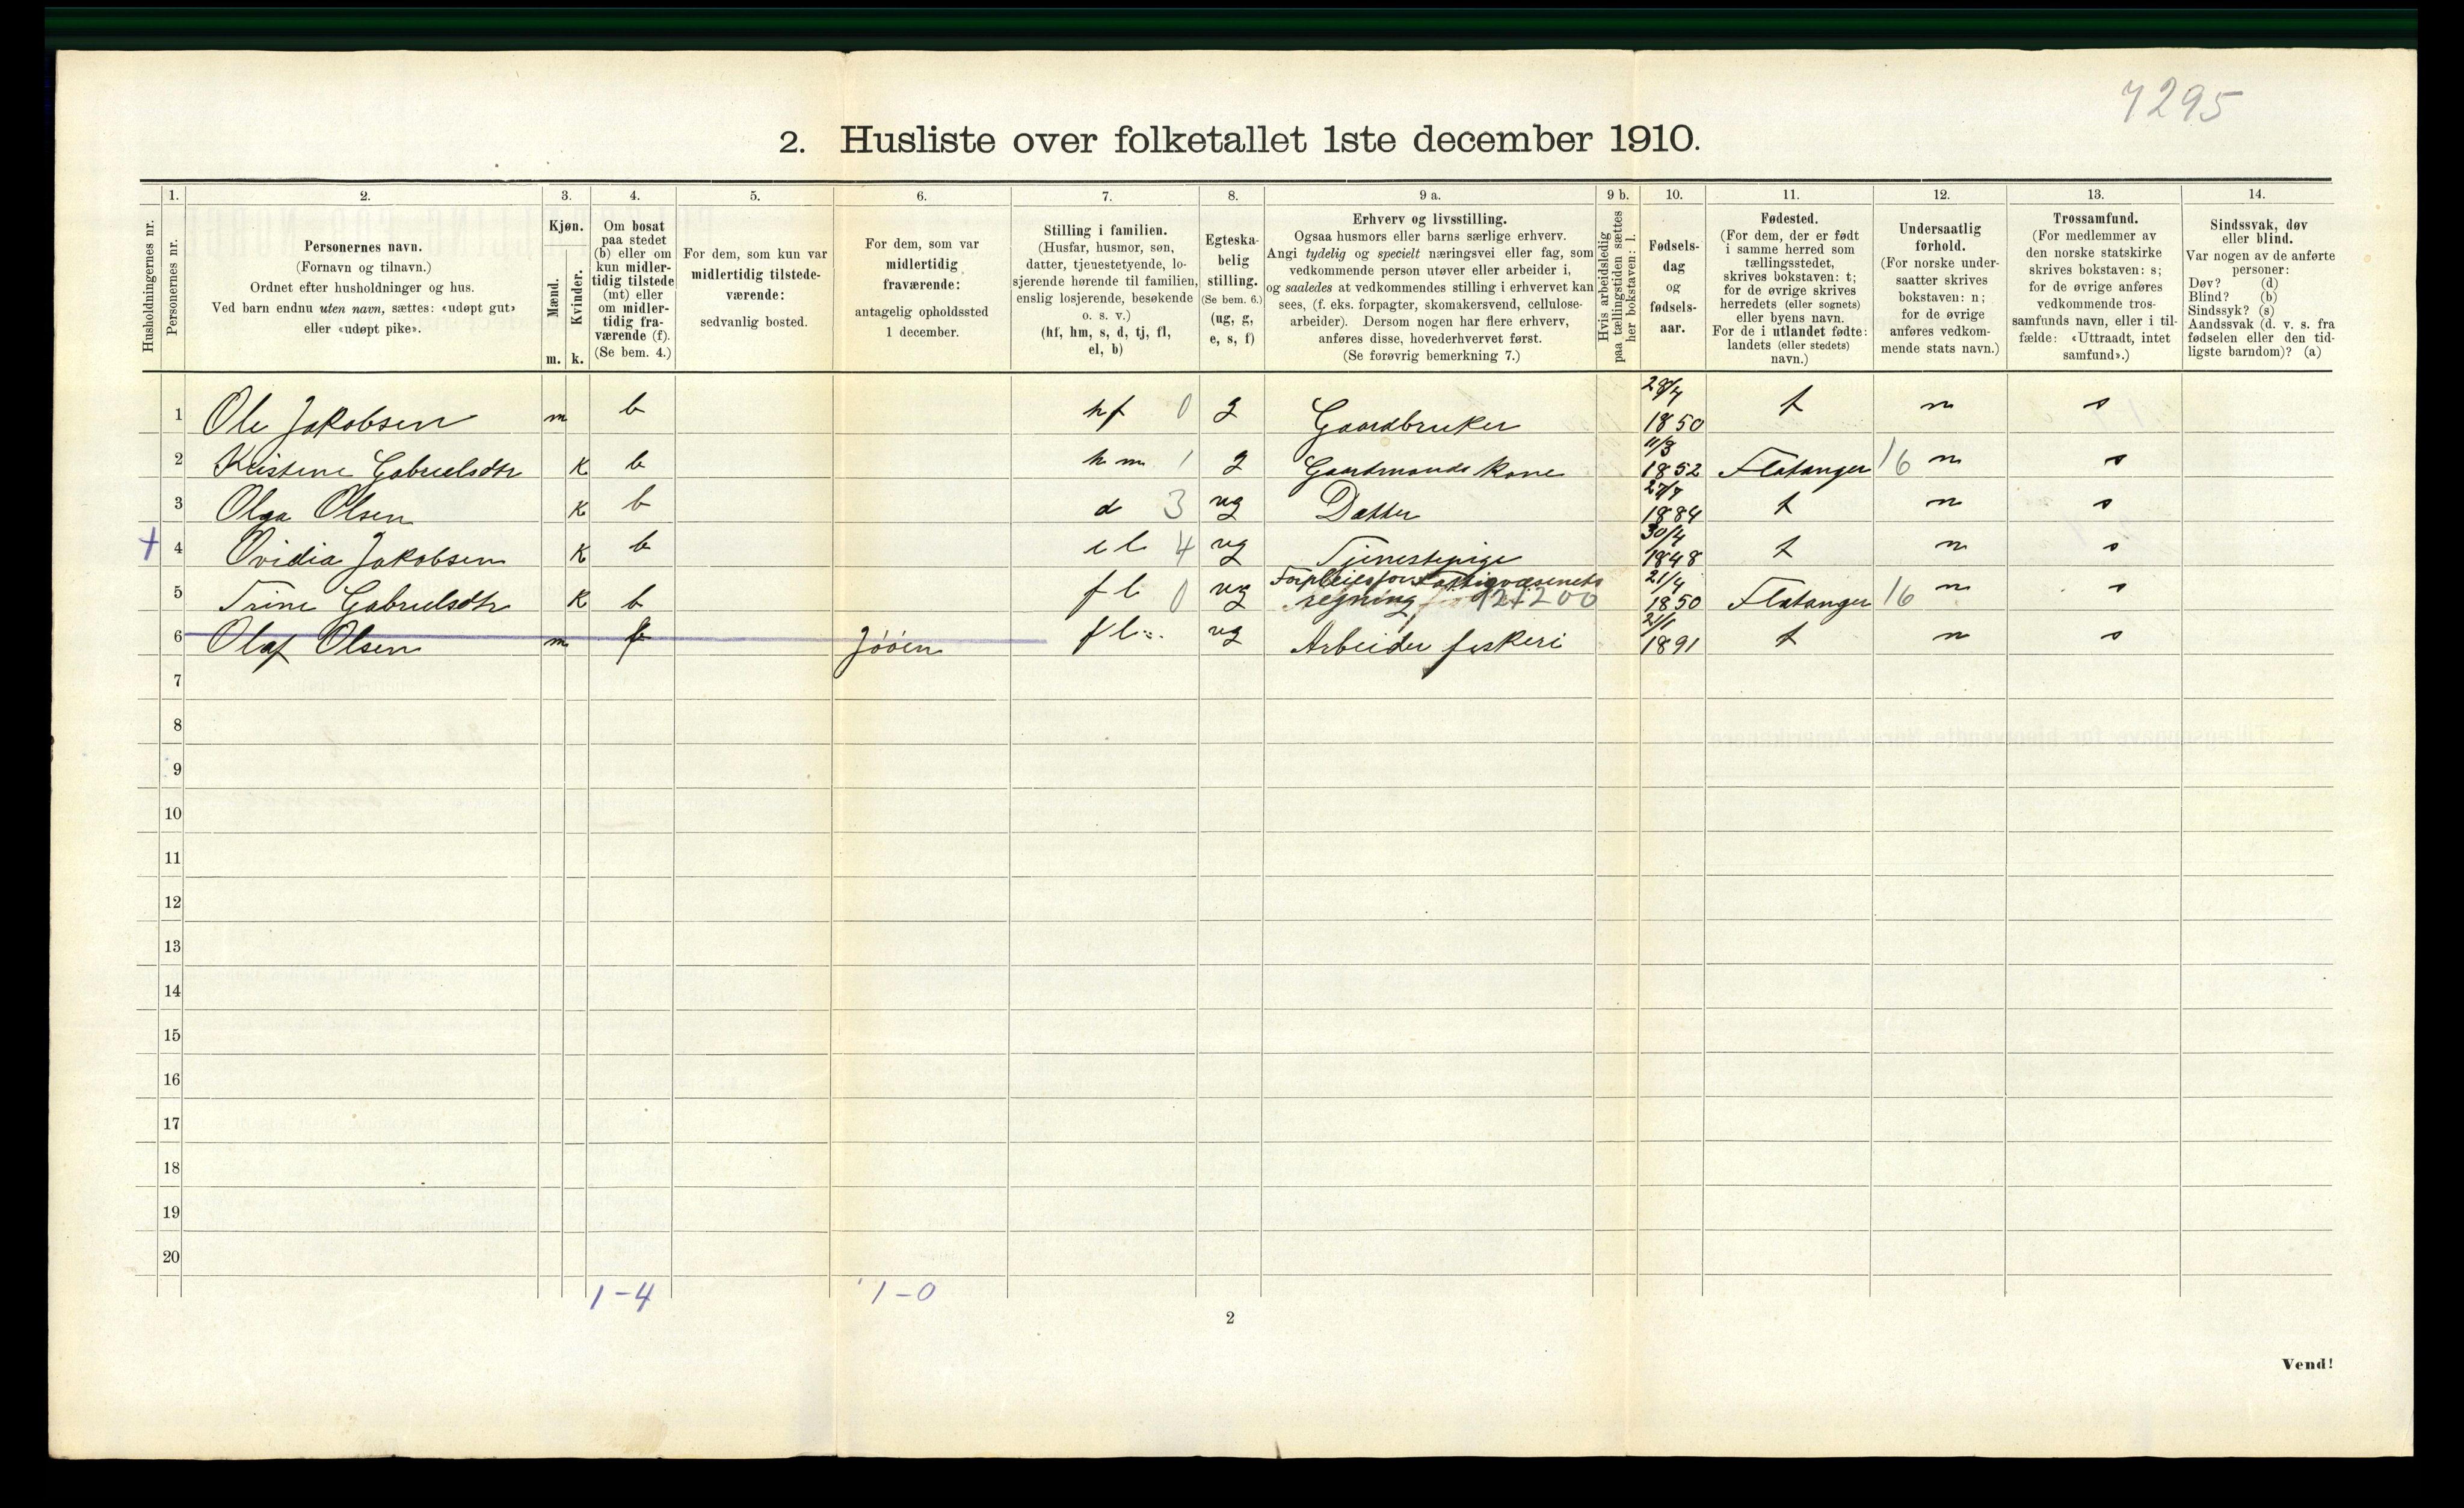 7295
2. Husliste over folketallet 1ste december 1910.
Husholdningernes nr.
1.
Personernes nr.
2.
Personernes navn.
(Fornavn og tilnavn.)
Ordnet efter husholdninger og hus.
Ved barn endnu uten navn, sættes: «udøpt gut»
eller «udøpt pike».
3.
Kjøn.
Mænd.
Kvinder.
m. k.
4.
Om bosat
paa stedet
(b) eller om
kun midler-
tidig tilstede
(mt) eller
om midler-
tidig fra-
værende (f).
(Se bem. 4.)
5.
For dem, som kun var
midlertidig tilstede-
værende:
sedvanlig bosted.
6.
For dem, som var
midlertidig
fraværende:
antagelig opholdssted
1 december.
7.
Stilling i familien.
(Husfar, husmor, søn,
datter, tjenestetyende, lo-
sjerende hørende til familien,
enslig losjerende, besøkende
o. s. v.)
(hf, hm, s, d, tj, fl,
el, b)
8.
Egteska-
belig
stilling.
(Se bem. 6.)
(ug, g,
e, s, f)
9 a.
Erhverv og livsstilling.
Ogsaa husmors eller barns særlige erhverv.
Angi tydelig og specielt næringsvei eller fag, som
vedkommende person utøver eller arbeider i,
og saaledes at vedkommendes stilling i erhvervet kan
sees, (f. eks. forpagter, skomakersvend, cellulose-
arbeider). Dersom nogen har flere erhverv,
anføres disse, hovederhvervet først.
(Se forøvrig bemerkning 7.)
9 b.
Hvis arbeidsledig
paa tællingstiden sættes
her bokstaven: l.
10.
Fødsels-
dag
og
fødsels-
aar.
11.
Fødested.
(For dem, der er født
i samme herred som
tællingsstedet,
skrives bokstaven: t;
for de øvrige skrives
herredets (eller sognets)
eller byens navn.
For de i utlandet fødte:
landets (eller stedets)
navn.)
12.
Undersaatlig
forhold.
(For norske under-
saatter skrives
bokstaven: n;
for de øvrige
anføres vedkom-
mende stats navn.)
13.
Trossamfund.
(For medlemmer av
den norske statskirke
skrives bokstaven: s;
for de øvrige anføres
vedkommende tros-
samfunds navn, eller i til-
fælde: «Uttraadt, intet
samfund».)
14.
Sindssvak, døv
eller blind.
Var nogen av de anførte
personer:
Døv? (d)
Blind? (b)
Sindssyk? (s)
Aandssvak (d. v. s. fra
fødselen eller den tid-
ligste barndom)? (a)
1 Ole Jakobsen m b hf 0 g Gaardbruker 28/4 1850 t n s
2 Kristine Gabrielsdtr K b hm 1 g Gaardmands Kone 11/3 1852 Flatanger 16 n s
3 Olga Olsen K b d 3 ug Datter 27/7 1884 t n s
+ 4 Ovidia Jakobsen K b el 4 ug Tjenestepige 30/4 1848 t n s
5 Trine Gabrielsdtr K b fl 0 ug Forpleies for Fattigvæsenets
regning 121200 21/4 1850 Flatanger 16 n s
6 Olaf Olsen m f Jøøen fl ug Arbeider fiskeri 2/1 1891 t n s
7
8
9
10
11
12
13
14
15
16
17
18
19
20
1-4 1-0
2
Vend!